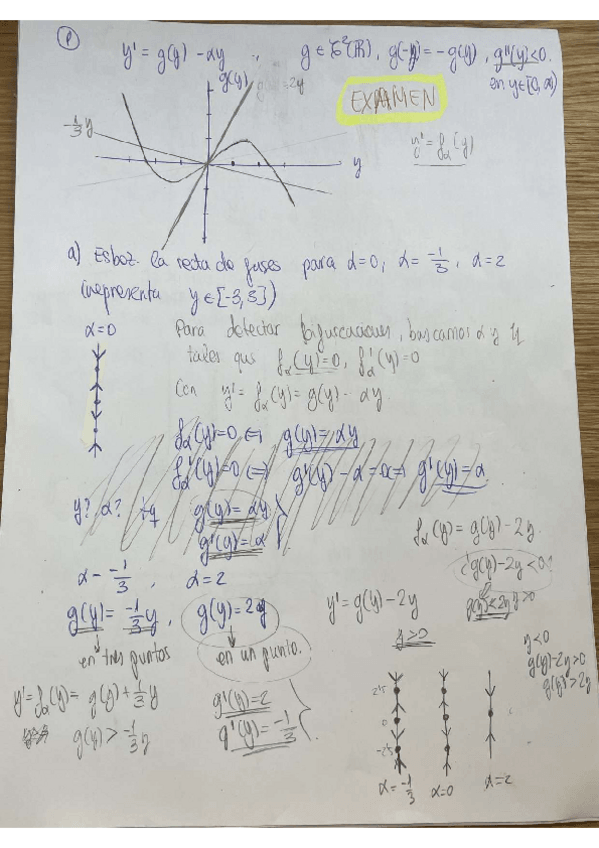 P
y' = g(y) - αy ; g ∈ C²(ℝ), g(-y) = -g(y), g''(y) < 0.
en y ∈ [0, ∞)
g(y)
2y
EXAMEN
-1/3 y
y
y' = f_α(y)
a) Esboz. la recta de fases para α=0, α = -1/3, α = 2
(representa y ∈ [-3, 3])
α = 0
Para detectar bifurcaciones, buscamos α y y
tales que f_α(y) = 0, f_α'(y) = 0
Con y' = f_α(y) = g(y) - αy.
f_α(y) = 0 ⇔ g(y) = αy
f_α'(y) = 0 ⇔ g'(y) - α = 0 ⇔ g'(y) = α
y? α? t.q g(y) = αy
g'(y) = α
f_α(y) = g(y) - 2y
¿g(y) - 2y < 0?
g(y) < 2y y > 0
α = -1/3, α = 2
g(y) = -1/3 y, g(y) = 2y
en tres puntos
en un punto.
y' = g(y) - 2y
y > 0
y < 0
g(y) - 2y > 0
g(y) > 2y
y' = f_α(y) = g(y) + 1/3 y
g(y) > -1/3 y
g'(y) = 2
g'(y) = -1/3
2'5
0
-2'5
α = -1/3 α = 0 α = 2